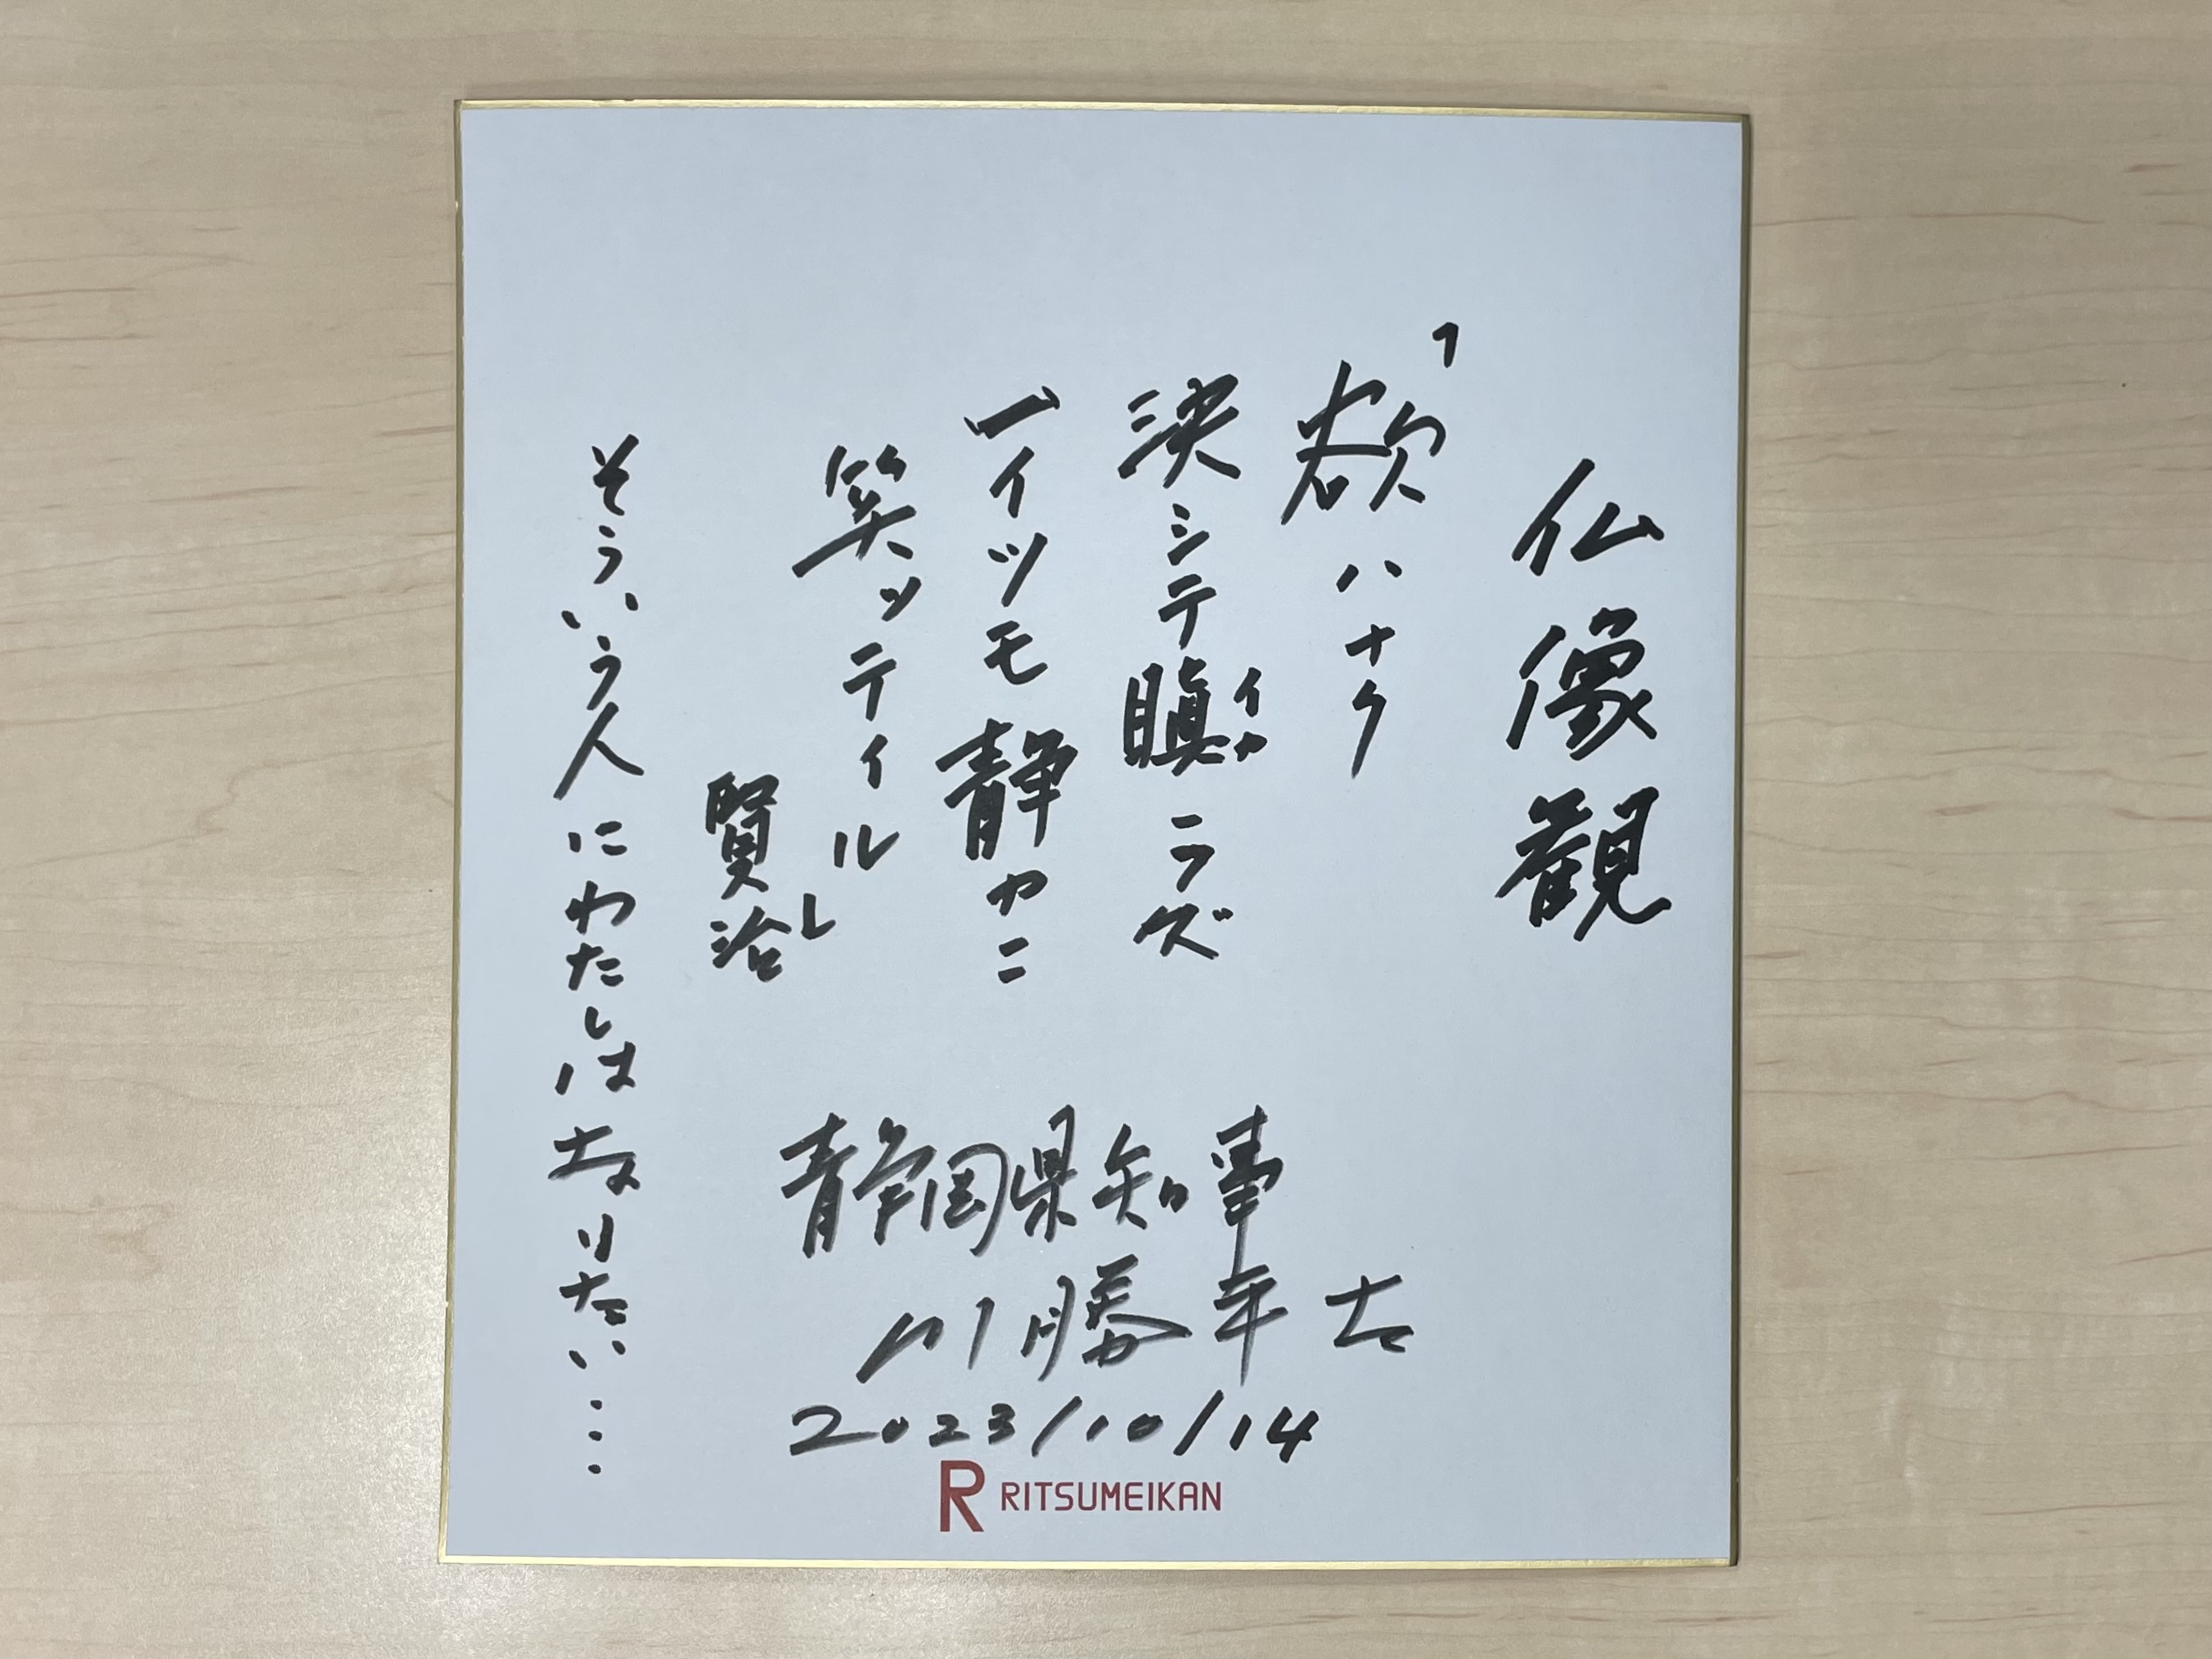 仏像観
「欲ハナク
決シテ瞋ラズ
イカ
一イツモ静カニ
笑ッテイル」
賢治
そういう人にわたしはなりたい・・・
静岡県知事
川勝平太
2023/10/14
R RITSUMEIKAN